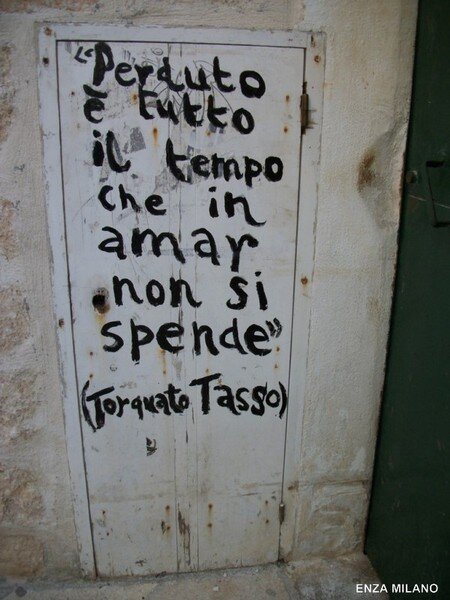 “Perduto
è tutto
il tempo
che in
amar
non si
spende”
(Torquato Tasso)
ENZA MILANO